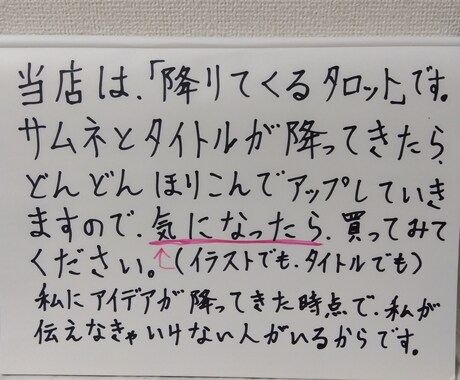 当店は、「降りてくるタロット」です。
サムネとタイトルが降ってきたら、
どんどんほりこんでアップしていき
ますので、気になったら、買ってみて
ください。（イラストでも、タイトルでも）
私にアイデアが降ってきた時点で、私が
伝えなきゃいけない人がいるからです。